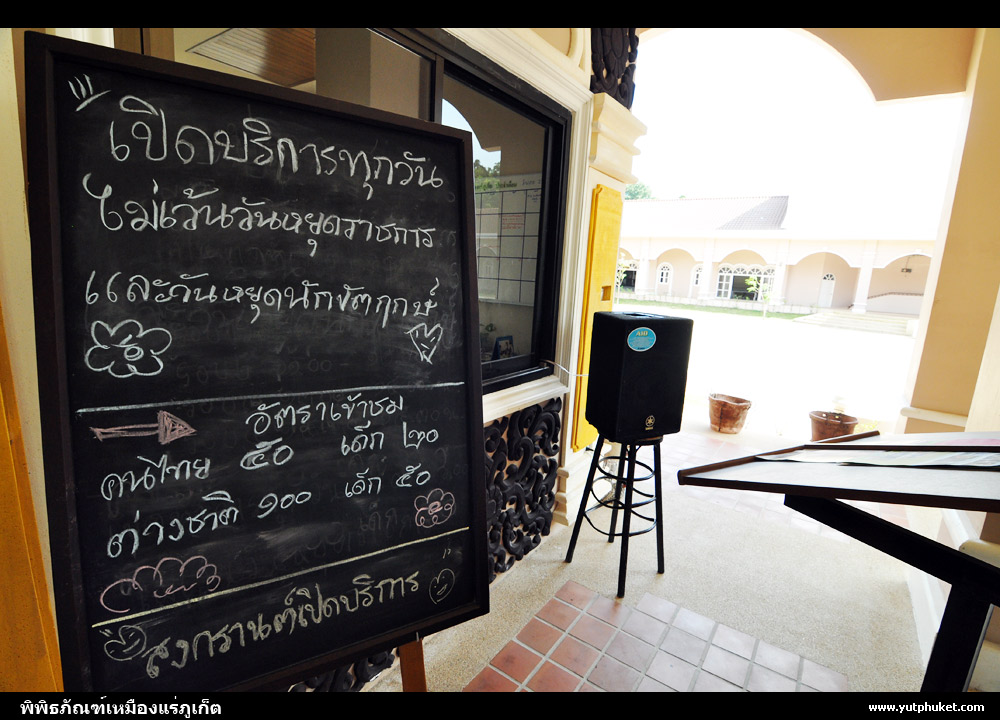 เปิดบริการทุกวัน
ไม่เว้นวันหยุดราชการ
และวันหยุดนักขัตฤกษ์
อัตราเข้าชม
คนไทย ๕๐ เด็ก ๒๐
ต่างชาติ ๑๐๐ เด็ก ๕๐
สงกรานต์เปิดบริการ
พิพิธภัณฑ์เหมืองแร่ภูเก็ต
www.yutphuket.com